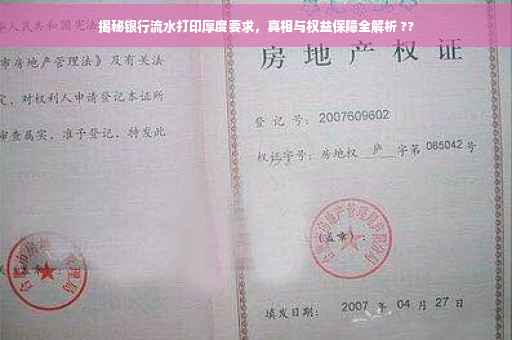 揭秘银行流水打印厚度要求，真相与权益保障全解析 ??
人民共和国宪法
市房地产管理法》及有关法
定，对权利人申请登记本证所
审查属实，准予登记，特发此
房地产权证
登记号：2007609602
权证字号：房地权 庐 字第 085042 号
(盖章)：
填发日期：2007 年 04 月 27 日